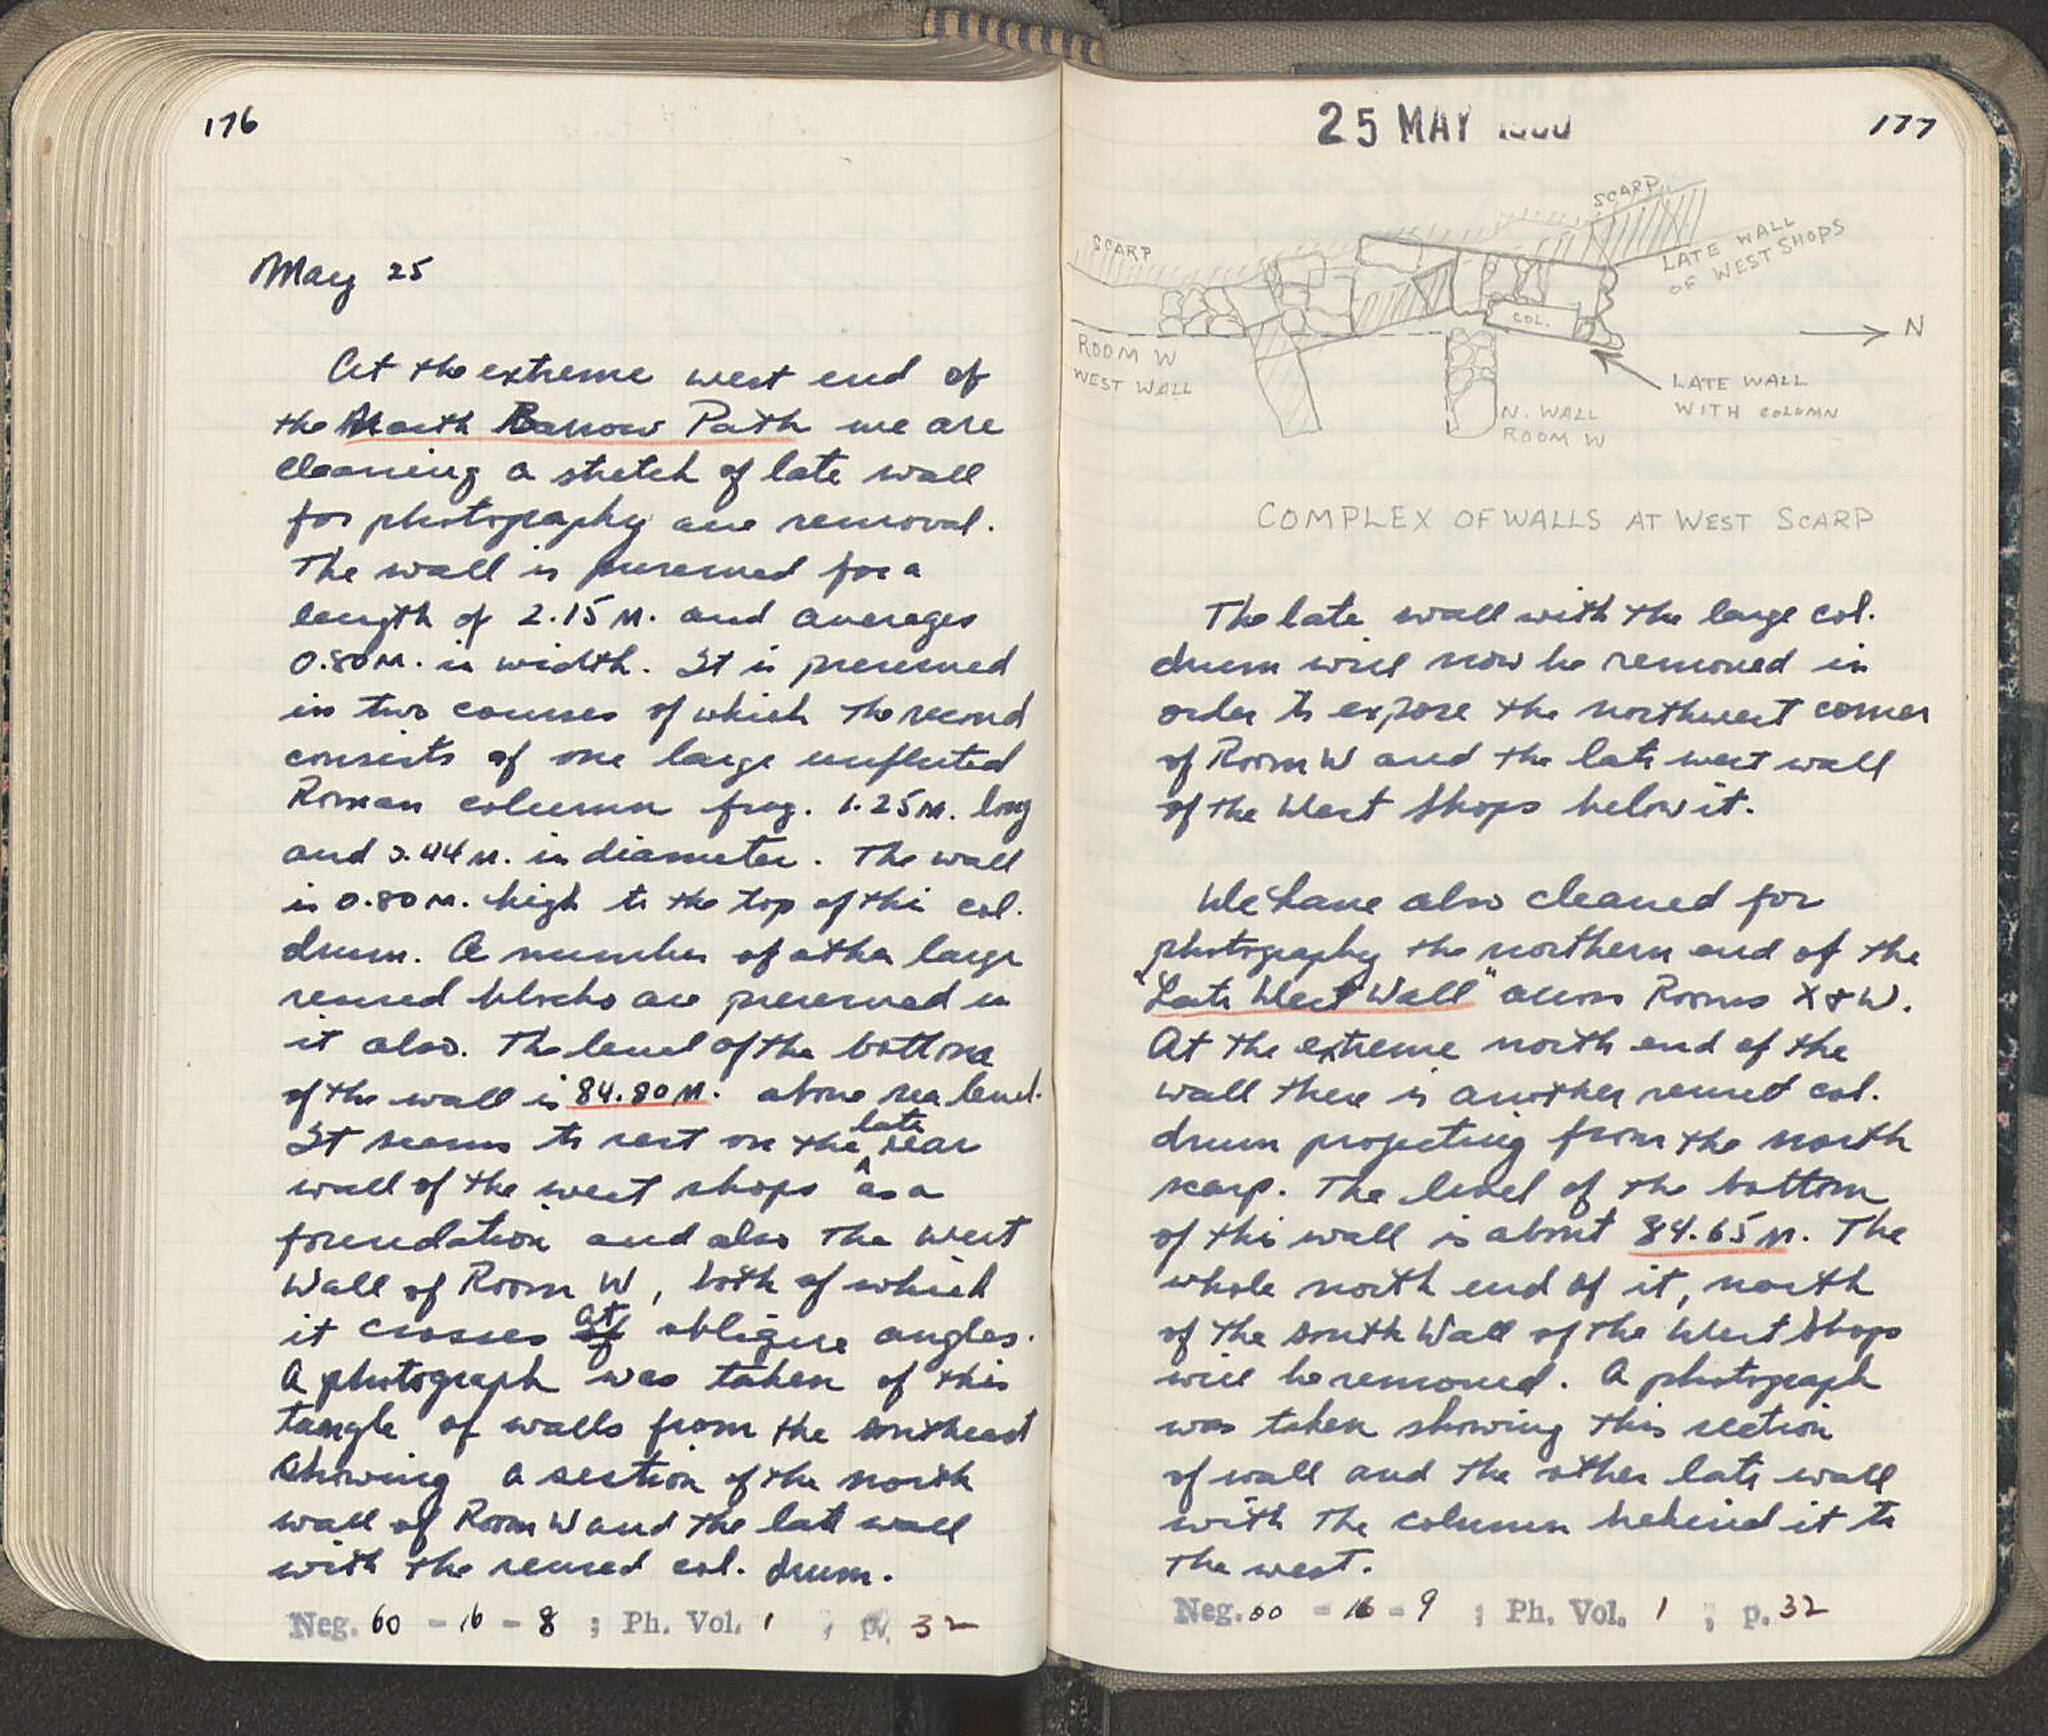 176
May 25
At the extreme west end of
the North Barrow Path we are
cleaning a stretch of late wall
for photography and removal.
The wall is preserved for a
length of 2.15 M. and averages
0.80 M. in width. It is preserved
in two courses of which the second
consists of one large unfluted
Roman column frag. 1.25 M. long
and 0.44 M. in diameter. The wall
is 0.80 M. high to the top of this col.
drum. A number of other large
reused blocks are preserved in
it also. The level of the bottom
of the wall is 84.80 M. above sea level.
It seems to rest on the late rear
wall of the west shops as a
foundation and also the West
Wall of Room W, both of which
it crosses of at oblique angles.
A photograph was taken of this
tangle of walls from the southeast
showing a section of the north
wall of Room W and the late wall
with the reused col. drum.
Neg. 60 - 16 - 8 ; Ph. Vol. 1 ; p. 32
25 MAY 1960
177
SCARP
SCARP
LATE WALL
OF WEST SHOPS
COL.
N
ROOM W
WEST WALL
LATE WALL
WITH COLUMN
N. WALL
ROOM W
COMPLEX OF WALLS AT WEST SCARP
The late wall with the large col.
drum will now be removed in
order to expose the northwest corner
of Room W and the late west wall
of the West Shops below it.
We have also cleaned for
photography the northern end of the
"Late West Wall" across Rooms X & W.
At the extreme north end of the
wall there is another reused col.
drum projecting from the north
scarp. The level of the bottom
of this wall is about 84.65 M. The
whole north end of it, north
of the South Wall of the West Shops
will be removed. A photograph
was taken showing this section
of wall and the other late wall
with the column behind it to
the west.
Neg. 60 - 16 - 9 ; Ph. Vol. 1 ; p. 32